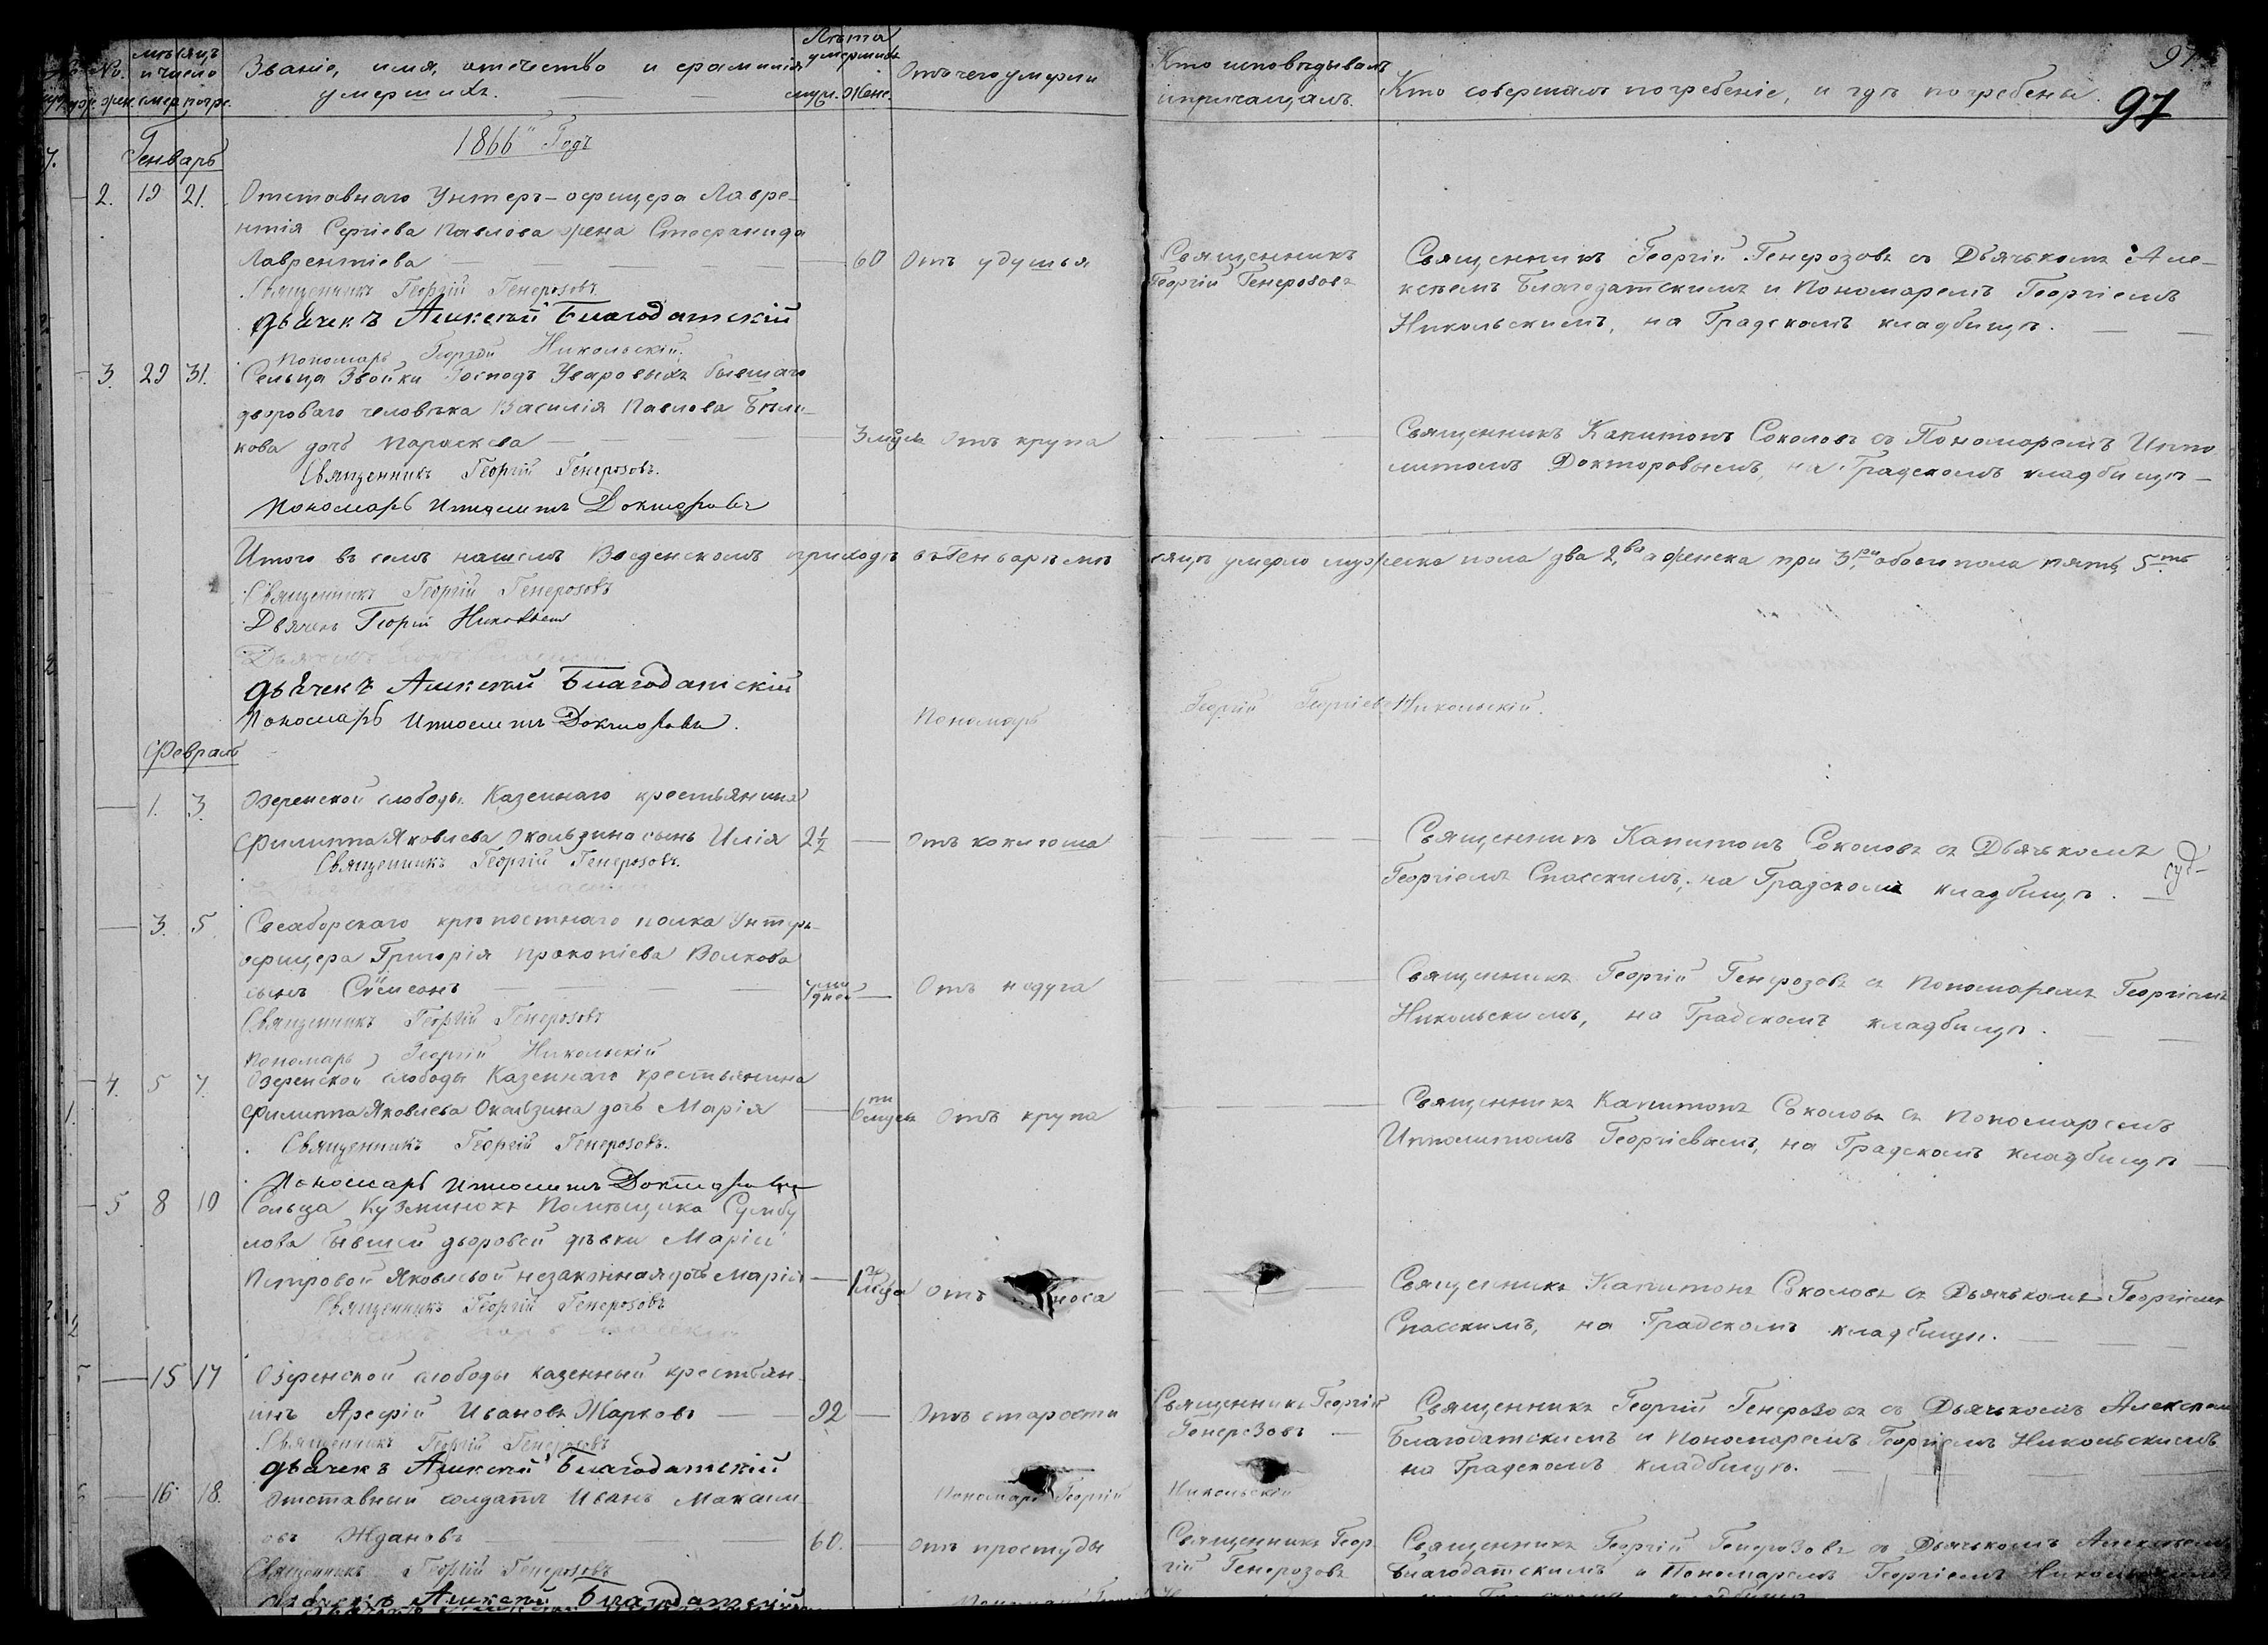 №. мѣсяцъ и число
муж. жен. смер. погре.
Званіе, имя, отечество и фамилія
умершихъ.
Лѣта умершихъ
муж. Жен.
Отъ чего умерли
Кто исповѣдывалъ
и причащалъ.
Кто совершалъ погребеніе, и гдѣ погребены.
97
97
1866 Годъ
Генварь
2. 19 21. Отставнаго Унтеръ-офицера Лавре-
нтія Сергіева Павлова жена Стефанида
Лаврентіева — 60 Отъ удушья
Священникъ Георгій Генерозовъ
Дьячекъ Алексѣй Благодатскій
Пономарь Георгій Никольскій.
Священникъ
Георгій Генерозовъ
Священникъ Георгій Генерозовъ съ Дьячькомъ Але-
ксѣемъ Благодатскимъ и Пономаремъ Георгіемъ
Никольскимъ, на Градскомъ кладбищѣ. —
3. 29 31. Сельца Звойки Господъ Уваровыхъ бывшаго
двороваго человѣка Василія Павлова Бѣли-
кова дочь Параскева — 3 мѣсц. Отъ крупа
Священникъ Георгій Генерозовъ.
Пономарь Ипполитъ Докторовъ
Священникъ Капитонъ Соколовъ съ Пономаремъ Иппо
литомъ Докторовымъ, на Градскомъ кладбищѣ —
Итого въ семъ нашемъ Введенскомъ приходѣ въ Генварѣ мѣ сяцѣ умерло мужеска пола два 2,ва а женска три 3,ри обоего пола пять 5ть
Священникъ Георгій Генерозовъ
Дьячекъ
Дьячекъ Алексѣй Благодатскій
Пономарь Ипполитъ Докторовъ.
Пономарь Георгій Георгіевъ Никольскій.
Февраль
— 1. 3. Озеренской слободы Казеннаго крестьянина
Филиппа Яковлева Окользина сынъ Илія 2½ — Отъ коклюша
Священникъ Георгій Генерозовъ.
Священникъ Капитонъ Соколовъ съ Дьячькомъ
Георгіемъ Спасскимъ, на Градскомъ кладбищѣ. —
— 3. 5. Свеаборскаго крѣпостнаго полка Унтеръ-
офицера Григорія Прокопіева Волкова
сынъ Сѵмеонъ — 7ми дней — Отъ недуга
Священникъ Георгій Генерозовъ
Пономарь Георгій Никольскій
Священникъ Георгій Генерозовъ съ Пономаремъ Георгіемъ
Никольскимъ, на Градскомъ кладбищѣ. —
4. 5 7. Озеренской слободы Казеннаго крестьянина
Филиппа Яковлева Окользина дочь Марія — 6ти мѣсцъ Отъ крупа
Священникъ Георгій Генерозовъ.
Пономарь Ипполитъ Докторовъ
Священникъ Капитонъ Соколовъ съ Пономаремъ
Ипполитомъ Георгіевымъ, на Градскомъ кладбищѣ —
5 8 10 Сельца Кузминокъ Помѣщика Сумбу
лова бывшей дворовой дѣвки Маріи
Петровой Яковлевой незаконная дочь Марія — Отъ
Священникъ Георгій Генерозовъ
Священникъ Капитонъ Соколовъ съ Дьячькомъ Георгіемъ
Спасскимъ, на Градскомъ кладбищѣ. —
— 15 17 Озеренской слободы казенный крестьян-
инъ Арефій Ивановъ Жарковъ — 92 — Отъ старости
Священникъ Георгій Генерозовъ
Дьячекъ Алексѣй Благодатскій
Пономарь Георгій Никольскій
Священникъ Георгій
Генерозовъ —
Священникъ Георгій Генерозовъ съ Дьячькомъ Алексѣемъ
Благодатскимъ и Пономаремъ Георгіемъ Никольскимъ
на Градскомъ кладбищѣ. —
— 16 18. Отставный солдатъ Иванъ Максим-
овъ Ждановъ — 60. — Отъ простуды
Священникъ Георгій Генерозовъ
Дьячекъ Алексѣй Благодатскій
Священникъ Геор-
гій Генерозовъ
Священникъ Георгій Генерозовъ съ Дьячькомъ Алексѣемъ
Благодатскимъ и Пономаремъ Георгіемъ Никольскимъ